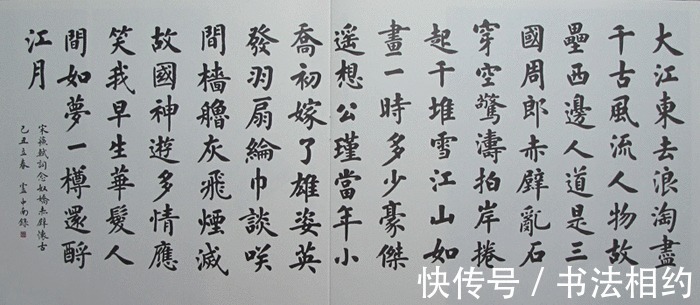 大江東去浪淘盡
千古風流人物故
壘西邊人道是三
國周郎赤壁亂石
穿空驚濤拍岸捲
起千堆雪江山如
畫一時多少豪傑
遥想公瑾當年小
喬初嫁了雄姿英
發羽扇綸巾談咲
間檣艣灰飛煙滅
故國神遊多情應
笑我早生華髮人
間如夢一樽還酹
江月
宋蘇軾詞念奴嬌赤壁懷古
己丑立春
快传号 / 书法相约